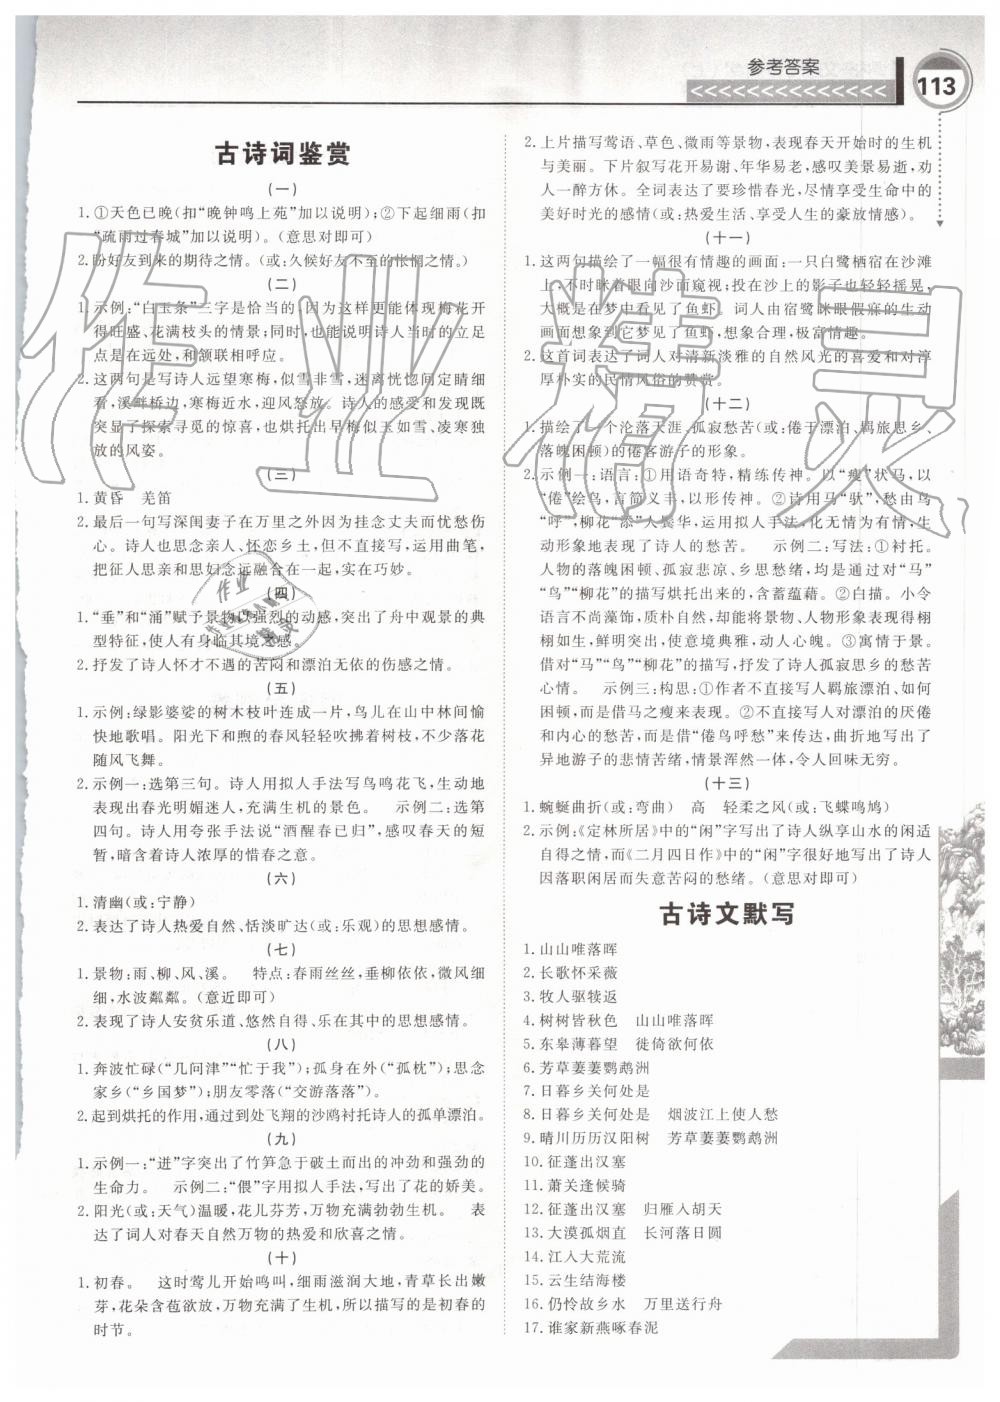 参考答案
<<<<<<<<<<<<<<
113
古诗词鉴赏
(一)
1.①天色已晚(扣“晚钟鸣上苑”加以说明);②下起细雨(扣
“疏雨过春城”加以说明)。(意思对即可)
2.盼好友到来的期待之情。(或:久候好友不至的怅惘之情。)
(二)
1.示例:“白玉条”三字是恰当的,因为这样更能体现梅花开
得旺盛、花满枝头的情景;同时,也能说明诗人当时的立足
点是在远处,和颔联相呼应。
2.这两句是写诗人远望寒梅,似雪非雪,迷离恍惚间定睛细
看,溪畔桥边,寒梅近水,迎风玉立。诗人的感受和发现既
突显了探索寻觅的惊喜,也烘托出早梅似玉如雪、凌寒独
放的风姿。
(三)
1.黄昏 羌笛
2.最后一句写深闺妻子在万里之外因为挂念丈夫而忧愁伤
心。诗人也思念亲人、怀恋乡土,但不直接写,运用曲笔,
把征人思亲和思妇念远融合在一起,实在巧妙。
(四)
1.“垂”和“涌”赋予景物以强烈的动感,突出了舟中观景的典
型特征,使人有身临其境之感。
2.抒发了诗人怀才不遇的苦闷和漂泊无依的伤感之情。
(五)
1.示例:绿影婆娑的树木枝叶连成一片,鸟儿在山中林间愉
快地歌唱。阳光下和煦的春风轻轻吹拂着树枝,不少落花
随风飞舞。
2.示例一:选第三句。诗人用拟人手法写鸟鸣花飞,生动地
表现出春光明媚迷人,充满生机的景色。 示例二:选第
四句。诗人用夸张手法说“酒醒春已归”,感叹春天的短
暂,暗含着诗人浓厚的惜春之意。
(六)
1.清幽(或:宁静)
2.表达了诗人热爱自然、恬淡旷达(或:乐观)的思想感情。
(七)
1.景物:雨、柳、风、溪。 特点:春雨丝丝,垂柳依依,微风细
细,水波粼粼。(意近即可)
2.表现了诗人安贫乐道、悠然自得、乐在其中的思想感情。
(八)
1.奔波忙碌(“几问津”“忙于我”);孤身在外(“孤枕”);思念
家乡(“乡国梦”);朋友零落(“交游落落”)
2.起到烘托的作用,通过到处飞翔的沙鸥衬托诗人的孤单漂泊。
(九)
1.示例一:“迸”字突出了竹笋急于破土而出的冲劲和强劲的
生命力。 示例二:“偎”字用拟人手法,写出了花的娇美。
2.阳光(或:天气)温暖,花儿芬芳,万物充满勃勃生机。 表
达了词人对春天自然万物的热爱和欣喜之情。
(十)
1.初春。 这时莺儿开始鸣叫,细雨滋润大地,青草长出嫩
芽,花朵含苞欲放,万物充满了生机,所以描写的是初春的
时节。
2.上片描写莺语、草色、微雨等景物,表现春天开始时的生机
与美丽。下片叙写花开易谢、年华易老,感叹美景易逝,劝
人一醉方休。全词表达了要珍惜春光,尽情享受生命中的
美好时光的感情(或:热爱生活、享受人生的豪放情感)。
(十一)
1.这两句描绘了一幅很有情趣的画面:一只白鹭栖宿在沙滩
上,不时眯着眼睛向沙面窥视;投在沙上的影子也轻轻摇晃,
大概是在梦中看见了鱼虾。词人由宿鹭眯眼假寐的生动
画面想象到它梦见了鱼虾,想象合理,极富情趣。
2.这首词表达了词人对清新淡雅的自然风光的喜爱和对淳
厚朴实的民情风俗的赞赏。
(十二)
1.描绘了一个沦落天涯、孤寂愁苦(或:倦于漂泊、羁旅思乡、
落魄困顿)的倦客游子的形象。
2.示例一:语言:①用语奇特,精练传神。以“瘦”状马,以
“倦”绘鸟,言简义丰,以形传神。②诗用马“驮”,鸟
“呼”,柳花“添”人鬓华,运用拟人手法,化无情为有情,生
动形象地表现了诗人的愁苦。 示例二:写法:①衬托。
人物的落魄困顿、孤寂悲凉、思乡愁绪,均通过对“马”
“鸟”“柳花”的描写烘托出来的,含蓄蕴藉。②白描。小令
语言不尚藻饰,质朴自然,却能将景物、人物形象表现得栩
栩如生,鲜明突出,使意境典雅,动人心魄。③寓情于景。
借对“马”“鸟”“柳花”的描写,抒发了诗人孤寂思乡的愁苦
情怀。 示例三:构思:①作者不直接写人羁旅漂泊、如何
困顿,而是借马之瘦来表现。②不直接写对漂泊的厌倦
和内心的愁苦,而是以“倦鸟呼愁”来传达,曲折地写出了
异地游子的悲情苦情,情景浑然一体,令人回味无穷。
(十三)
1.蜿蜒曲折(或:弯曲) 高 轻柔之风(或:飞蝶鸣鸠)
2.示例:《定林所居》中的“闲”字写出了诗人纵享山水的闲适
自得之情,而《二月四日作》中的“闲”字很好地写出了诗人
因落职闲居而失意苦闷的愁绪。(意思对即可)
古诗文默写
1.山山唯落晖
2.长歌怀采薇
3.牧人驱犊返
4.树树皆秋色 山山唯落晖
5.东皋薄暮望 徙倚欲何依
6.芳草萋萋鹦鹉洲
7.日暮乡关何处是
8.日暮乡关何处是 烟波江上使人愁
9.晴川历历汉阳树 芳草萋萋鹦鹉洲
10.征蓬出汉塞
11.萧关逢候骑
12.征蓬出汉塞 归雁入胡天
13.大漠孤烟直 长河落日圆
14.江入大荒流
15.云生结海楼
16.仍怜故乡水 万里送行舟
17.谁家新燕啄春泥
作业精灵